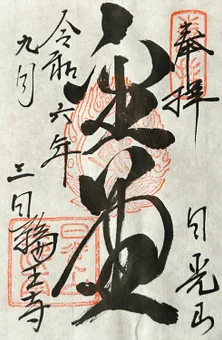 奉拝
日光山
金堂
令和六年
九月
三日
輪王寺